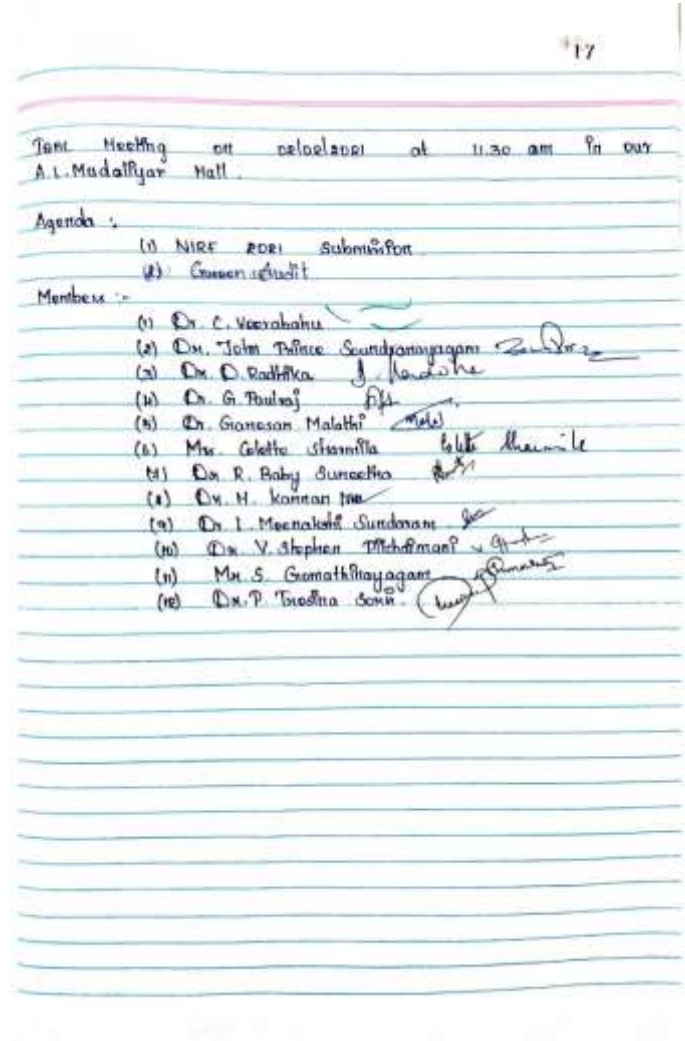 17
Meeting on 02/02/2021 at 11.30 am in our
A.L. Mudaliyar Hall.
Agenda :
(1) NIRF 2021 Submission
(2) Green Audit
Members :-
(1) Dr. C. Veerabahu
(2) Dr. John Prince Soundranayagam
(3) Dr. D. Radhika
(4) Dr. G. Paulraj
(5) Dr. Ganesan Malathi
(6) Mrs. Colette Sharmila
(7) Dr R. Baby Suneetha
(8) Dr. M. Kannan
(9) Dr. L. Meenakshi Sundaram
(10) Dr V. Stephen Pitchaimani
(11) Mr S. Gomathinayagam
(12) Dr. P.